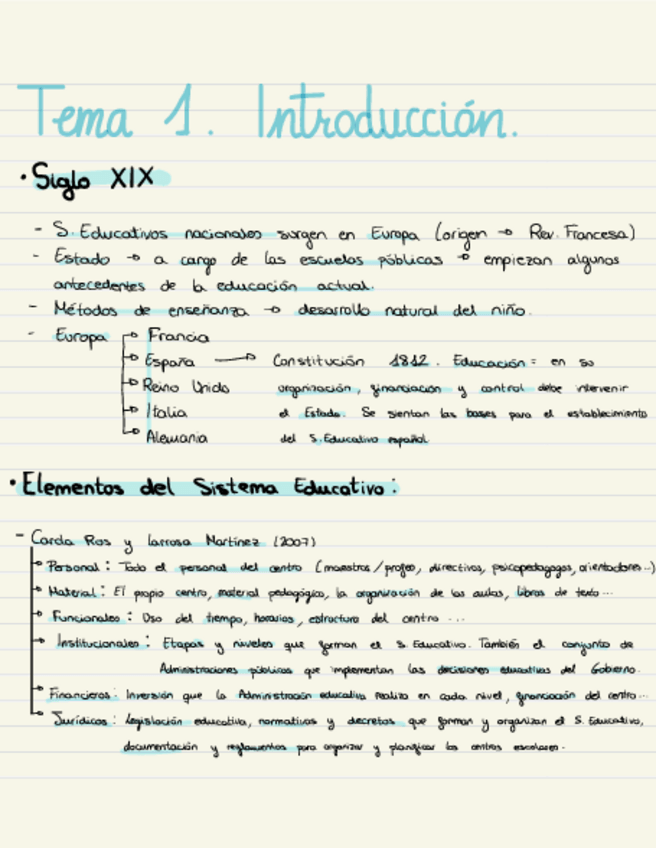 Tema 1. Introducción.
• Siglo XIX
- S. Educativos nacionales surgen en Europa (origen → Rev. Francesa)
- Estado → a cargo de las escuelas públicas → empiezan algunos
antecedentes de la educación actual.
- Métodos de enseñanza → desarrollo natural del niño.
- Europa → Francia
→ España → Constitución 1812. Educación = en su
→ Reino Unido organización, financiación y control debe intervenir
→ Italia el Estado. Se sientan las bases para el establecimiento
→ Alemania del S. Educativo español
• Elementos del Sistema Educativo:
- Carda Ros y Larrosa Martínez (2007)
→ Personal: Todo el personal del centro (maestros/profes, directivos, psicopedagogos, orientadores...)
→ Material: El propio centro, material pedagógico, la organización de las aulas, libros de texto...
→ Funcionales: Uso del tiempo, horarios, estructura del centro ...
→ Institucionales: Etapas y niveles que forman el S. Educativo. También el conjunto de
Administraciones públicas que implementan las decisiones educativas del Gobierno.
→ Financieros: Inversión que la Administración educativa realiza en cada nivel, financiación del centro...
→ Jurídicos: Legislación educativa, normativas y decretos que forman y organizan el S. Educativo,
documentación y reglamentos para organizar y planificar los centros escolares.